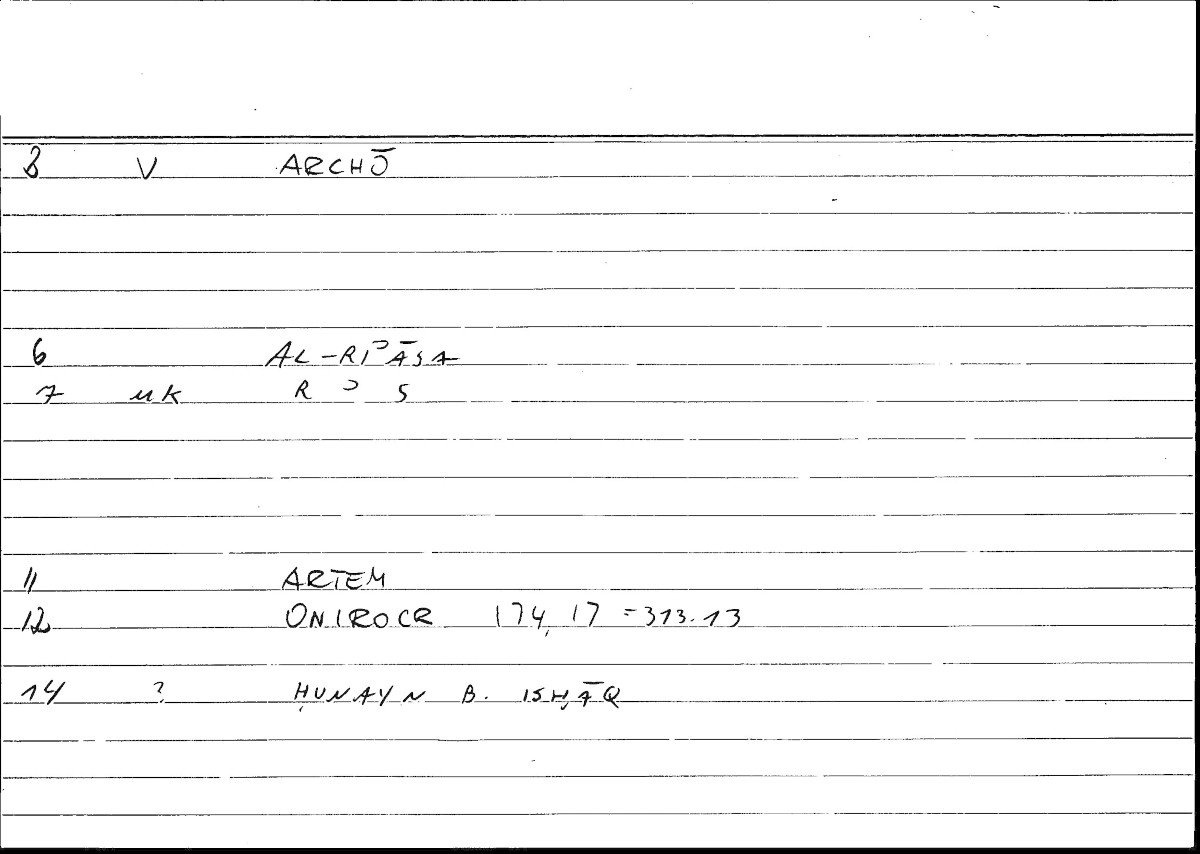 8 V ARCHŌ
6 AL-RIʾĀSA
7 uk R ʾ S
11 ARTEM
12 ONIROCR 174,17 = 313.13
14 ? ḤUNAYN B. ISḤĀQ